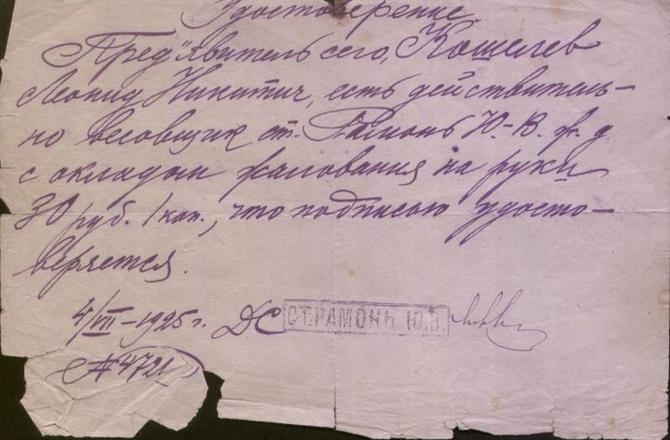 Удостоверение
Пред"явитель сего, Кошелев
Леонид Никитич, есть действитель-
но весовщик ст. Рамонь Ю-В. ж. д.
с окладом жалования на руки
30 руб. 1 коп., что подписью удосто-
веряется.
4/VII-1925 г. ДС СТ. РАМОНЬ Ю.В.
№ 4721